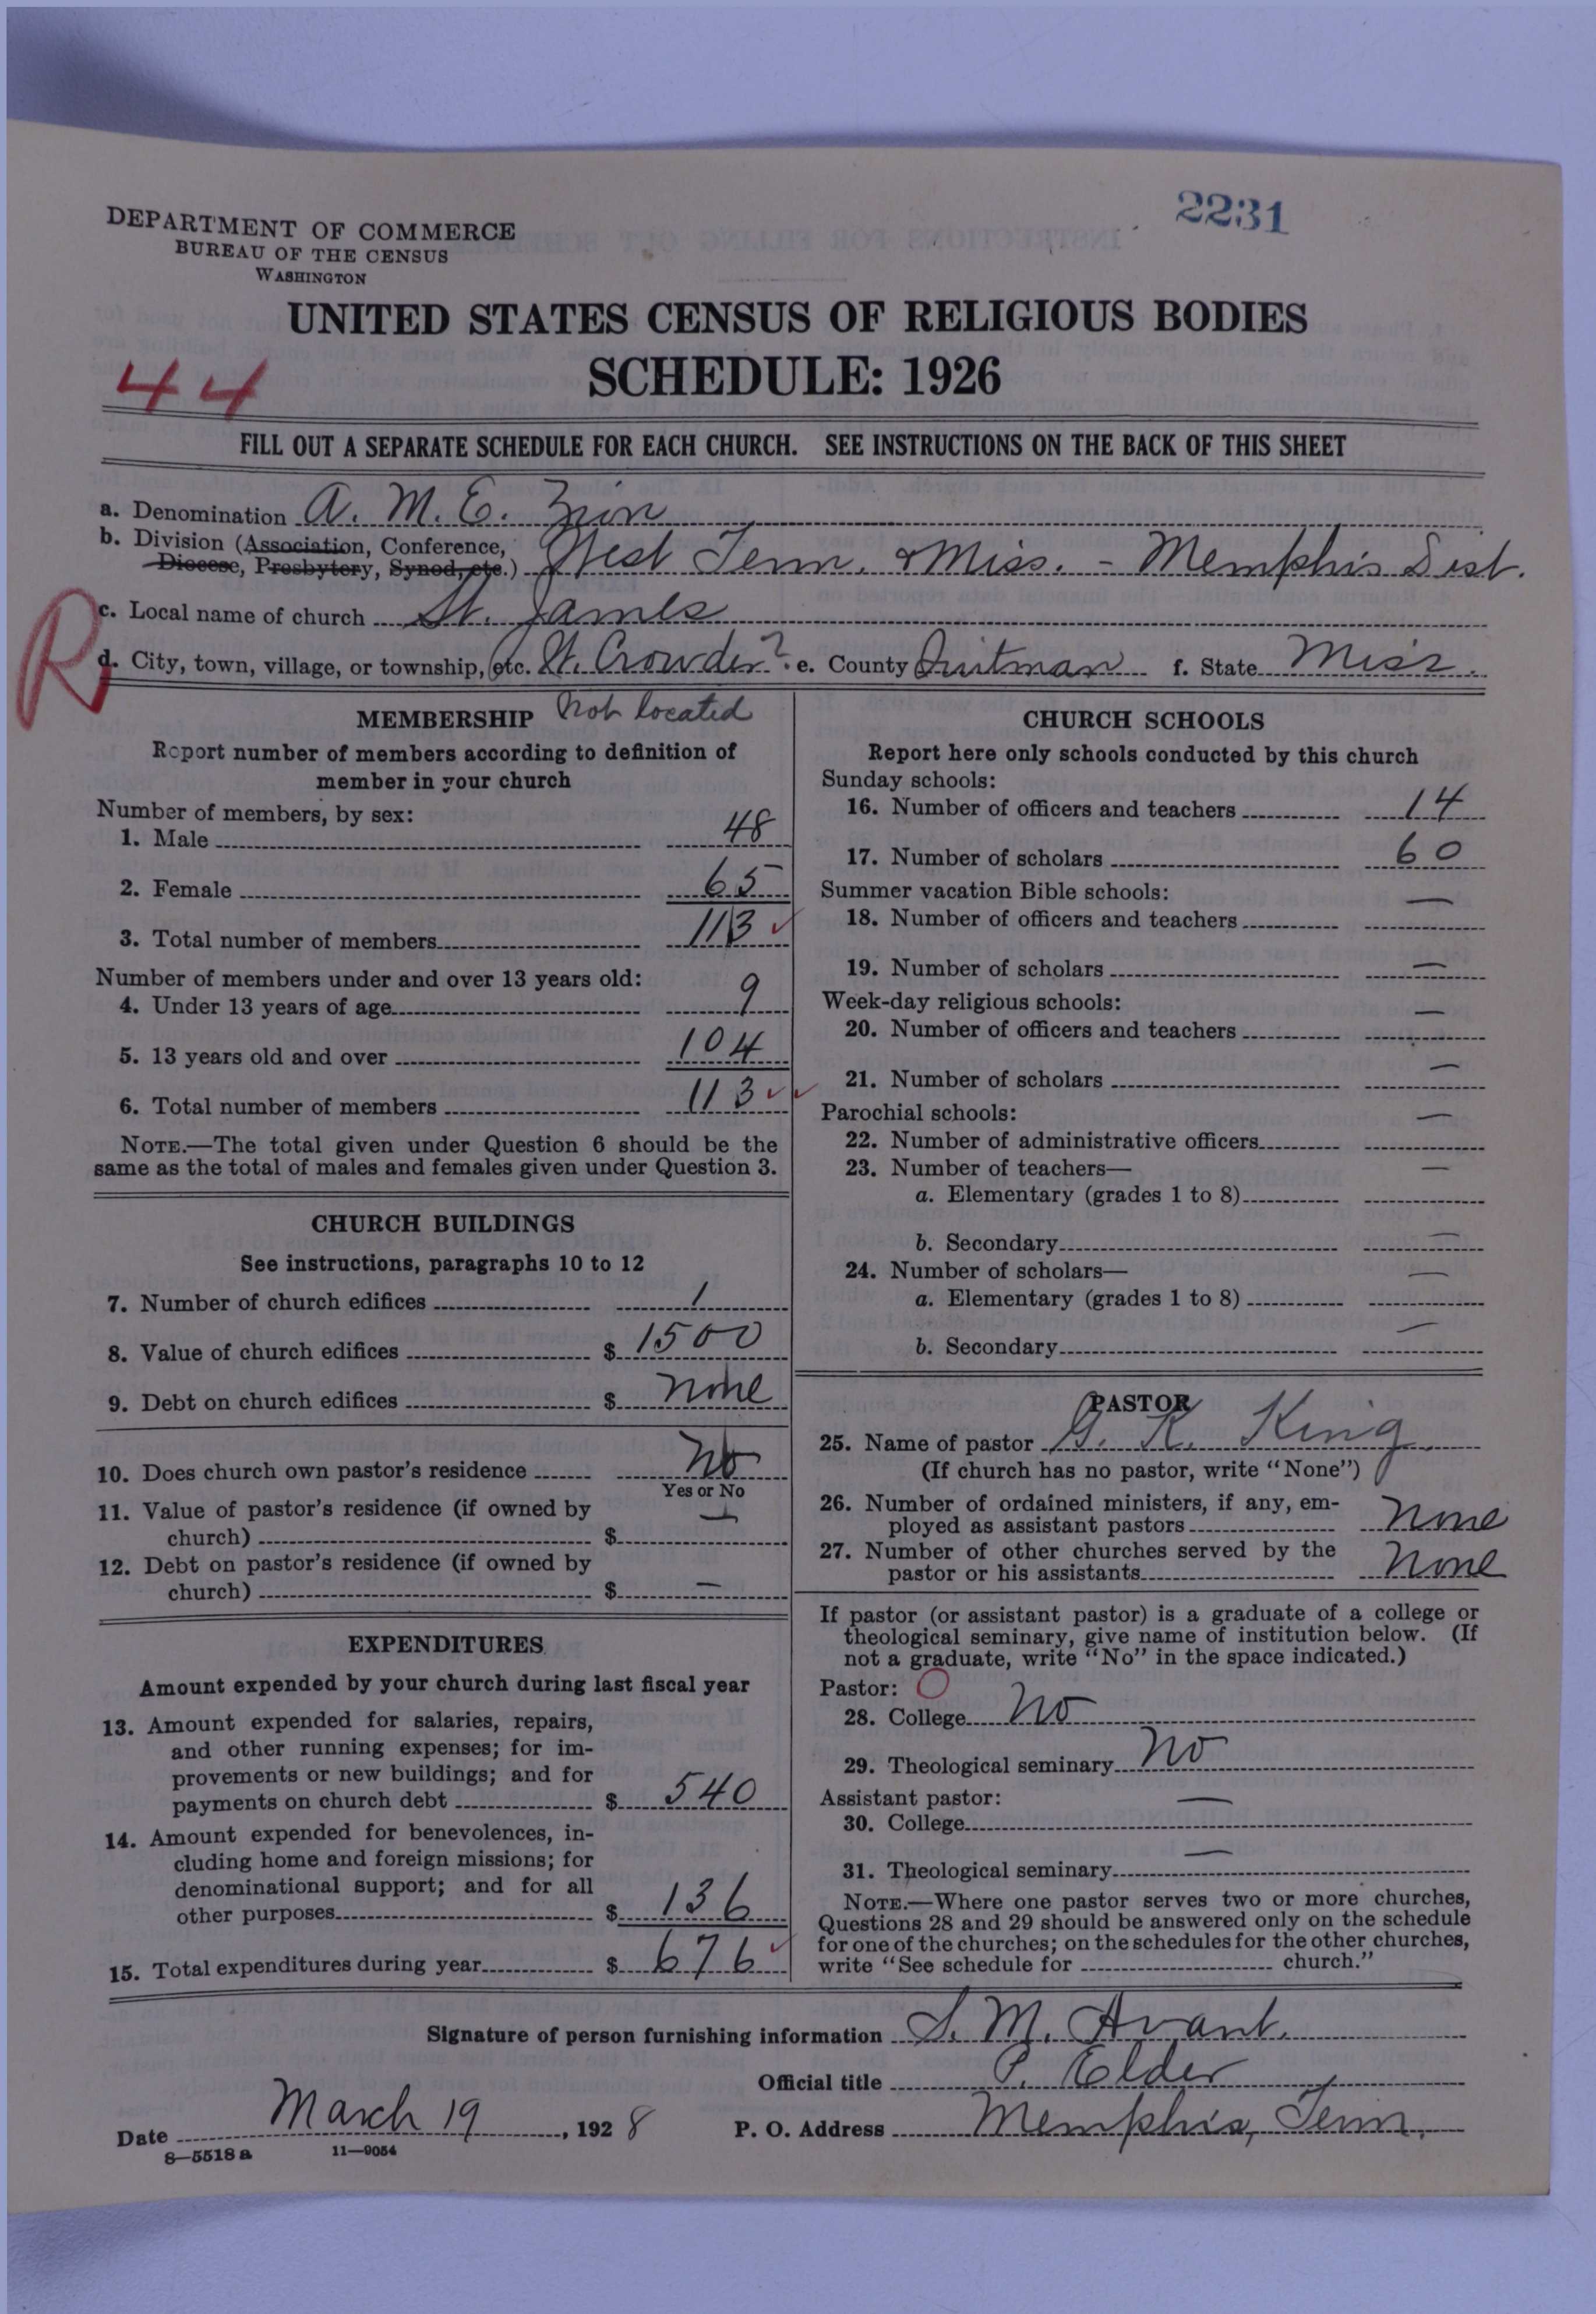 2231
DEPARTMENT OF COMMERCE
BUREAU OF THE CENSUS
WASHINGTON
UNITED STATES CENSUS OF RELIGIOUS BODIES
SCHEDULE: 1926
44
FILL OUT A SEPARATE SCHEDULE FOR EACH CHURCH. SEE INSTRUCTIONS ON THE BACK OF THIS SHEET
a. Denomination A. M. E. Zion
b. Division (Association, Conference,
Diocese, Presbytery, Synod, etc.) West Tenn. & Miss. - Memphis Dist.
c. Local name of church St. James
R
d. City, town, village, or township, etc. St. Crowder? e. County Quitman f. State Miss.
MEMBERSHIP Not located
Report number of members according to definition of
member in your church
Number of members, by sex:
1. Male 48
2. Female 65
3. Total number of members 113 ✓
Number of members under and over 13 years old:
4. Under 13 years of age 9
5. 13 years old and over 104
6. Total number of members 113 ✓✓
NOTE.—The total given under Question 6 should be the
same as the total of males and females given under Question 3.
CHURCH BUILDINGS
See instructions, paragraphs 10 to 12
7. Number of church edifices 1
8. Value of church edifices $ 1500
9. Debt on church edifices $ none
10. Does church own pastor's residence No
Yes or No
11. Value of pastor's residence (if owned by
church) $ —
12. Debt on pastor's residence (if owned by
church) $ —
EXPENDITURES
Amount expended by your church during last fiscal year
13. Amount expended for salaries, repairs,
and other running expenses; for im-
provements or new buildings; and for
payments on church debt $ 540
14. Amount expended for benevolences, in-
cluding home and foreign missions; for
denominational support; and for all
other purposes $ 136
15. Total expenditures during year $ 676 ✓
CHURCH SCHOOLS
Report here only schools conducted by this church
Sunday schools:
16. Number of officers and teachers 14
17. Number of scholars 60
Summer vacation Bible schools:
18. Number of officers and teachers —
19. Number of scholars —
Week-day religious schools:
20. Number of officers and teachers —
21. Number of scholars —
Parochial schools:
22. Number of administrative officers —
23. Number of teachers—
a. Elementary (grades 1 to 8) —
b. Secondary —
24. Number of scholars—
a. Elementary (grades 1 to 8) —
b. Secondary —
PASTOR
25. Name of pastor G. K. King
(If church has no pastor, write "None")
26. Number of ordained ministers, if any, em-
ployed as assistant pastors None
27. Number of other churches served by the
pastor or his assistants None
If pastor (or assistant pastor) is a graduate of a college or
theological seminary, give name of institution below. (If
not a graduate, write "No" in the space indicated.)
Pastor: O
28. College No
29. Theological seminary No
Assistant pastor:
30. College —
31. Theological seminary —
NOTE.—Where one pastor serves two or more churches,
Questions 28 and 29 should be answered only on the schedule
for one of the churches; on the schedules for the other churches,
write "See schedule for church."
Signature of person furnishing information S. M. Avant.
Official title P. Elder
Date March 19, 1928 P. O. Address Memphis, Tenn.
8—5518 a 11—9054